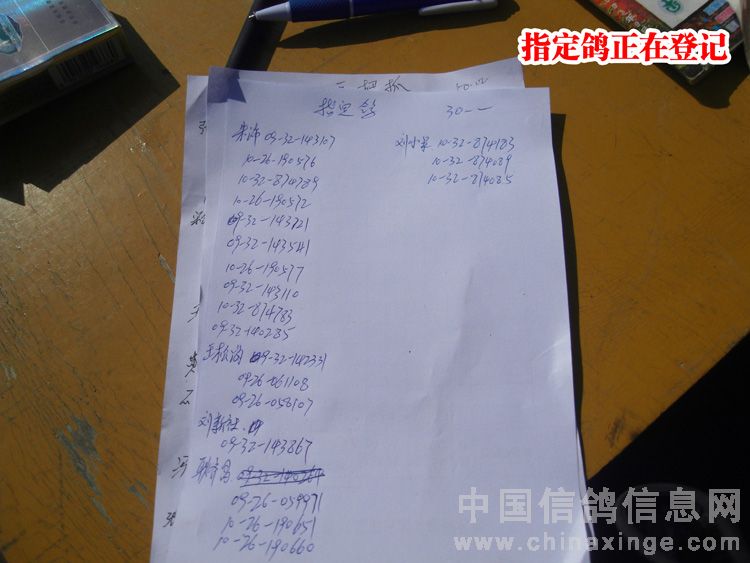 指定鸽正在登记
二
指定鸽 30--
朱涛 09-32-143107
10-26-190576
10-32-874789
10-26-190572
09-32-143721
09-32-143541
10-26-190577
09-32-143110
10-32-874783
09-32-140285
09-32-142331
09-26-061108
09-26-058107
刘新社
09-32-143867
09-26-059971
10-26-190651
10-26-190660
刘小军 10-32-874183
10-32-874089
10-32-874085
中国信鸽信息网
www.chinaxinge.com